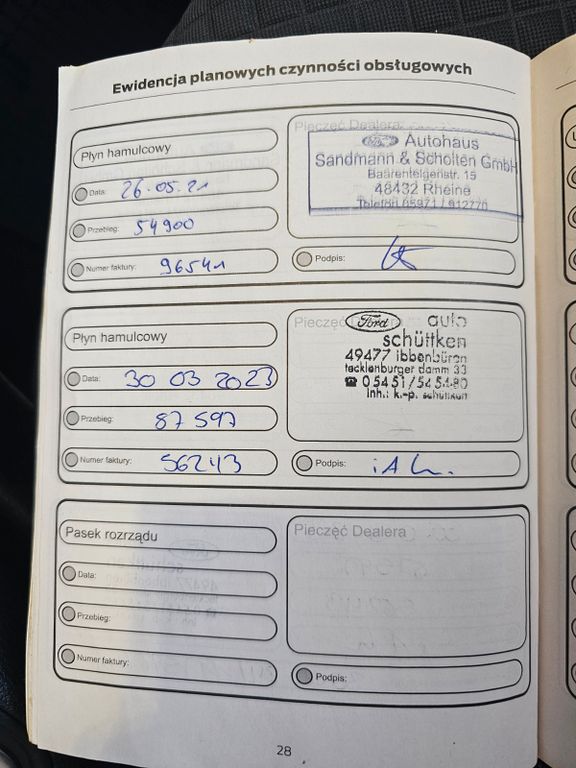 Ewidencja planowych czynności obsługowych
Płyn hamulcowy
Data: 26.05.21
Przebieg: 54900
Numer faktury: 96541
Pieczęć Dealera
Ford Autohaus
Sandmann & Scholten GmbH
Baarentelgenstr. 15
48432 Rheine
Telefon 05971 / 912770
Podpis:
Płyn hamulcowy
Data: 30 03 2023
Przebieg: 87 597
Numer faktury: 56243
Pieczęć
Ford auto
schüttken
49477 ibbenbüren
tecklenburger damm 33
☎ 05451/545480
inh.: k.-p. schüttken
Podpis: i.A.
Pasek rozrządu
Data:
Przebieg:
Numer faktury:
Pieczęć Dealera
Podpis:
28